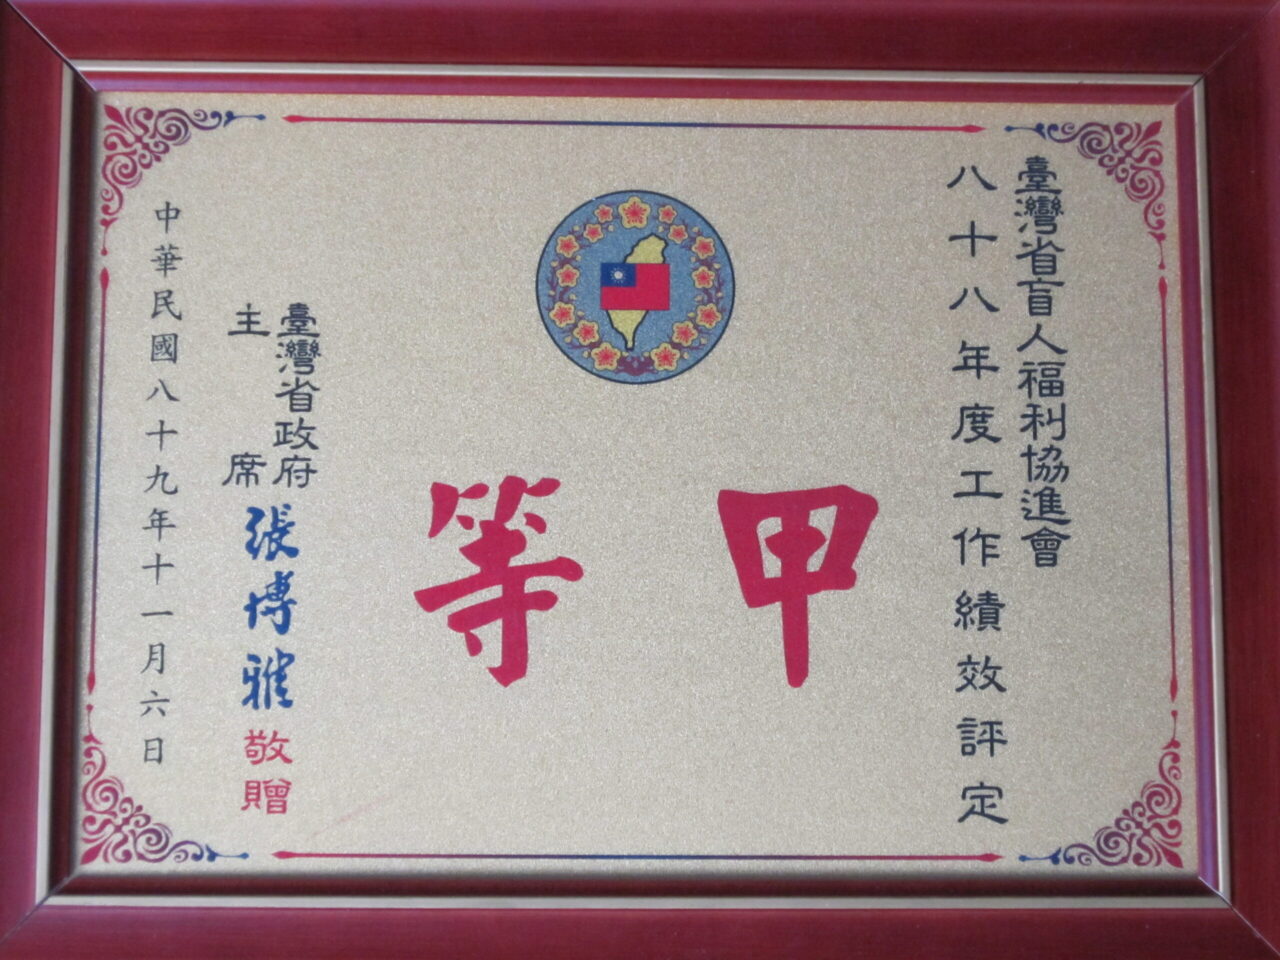 臺灣省盲人福利協進會
八十八年度工作績效評定
甲等
臺灣省政府
主席
張博雅
敬贈
中華民國八十九年十一月六日